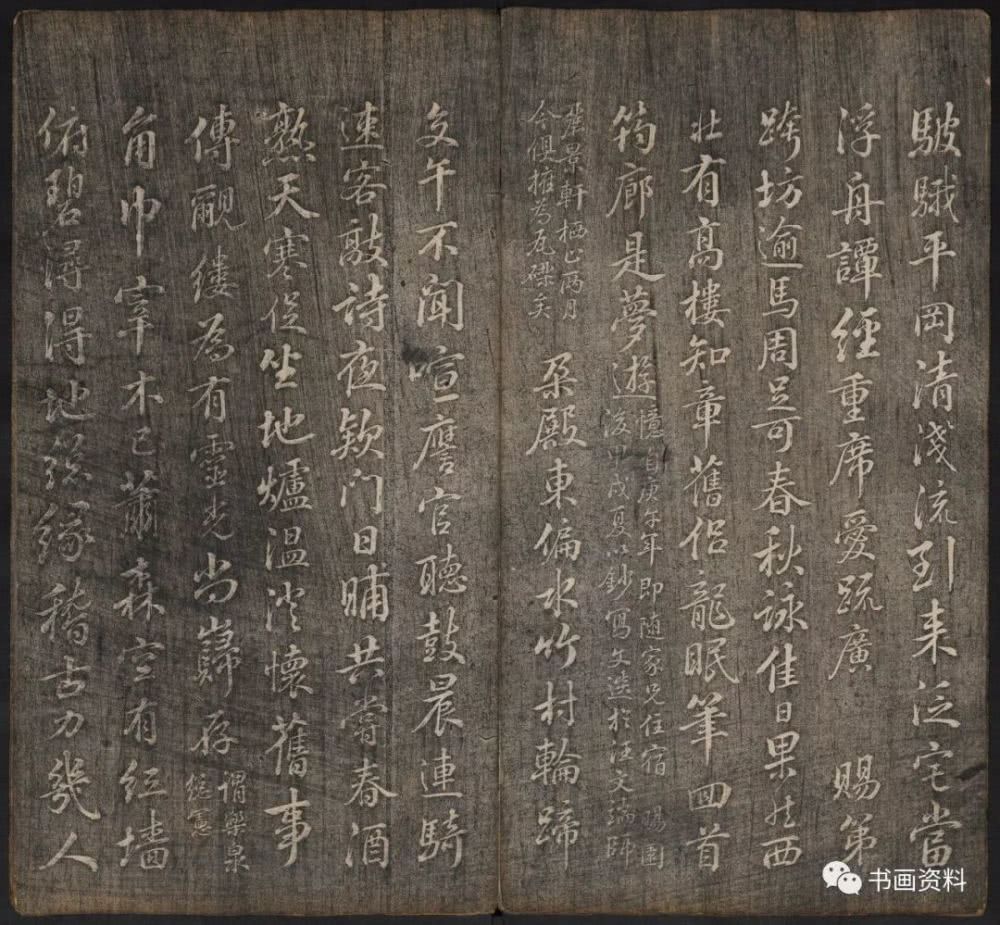 駊騀平岡清淺流到来泛宅當
浮舟譚經重席愛疏廣　賜第
跨坊逾馬周足可春秋詠佳日果然西
壯有高樓知章舊侣龍眠筆回首
筠廊是夢遊憶自庚午年即随家兄住宿　賜園
後甲戌夏以鈔寫文選於汪文端師
麗景軒栖止兩月
今俱摧為瓦礫矣
朶殿東偏水竹村輪蹄
交午不闻喧譍官聽鼓晨連騎
速客敲詩夜欵门日晡共嘗春酒
熟天寒促坐地爐温從懷舊事
傳覼縷為有靈光尚巋存謂樂泉
總憲
角巾宰木已蕭森空有红墙
俯碧潯得地緣稽古力幾人
书画资料